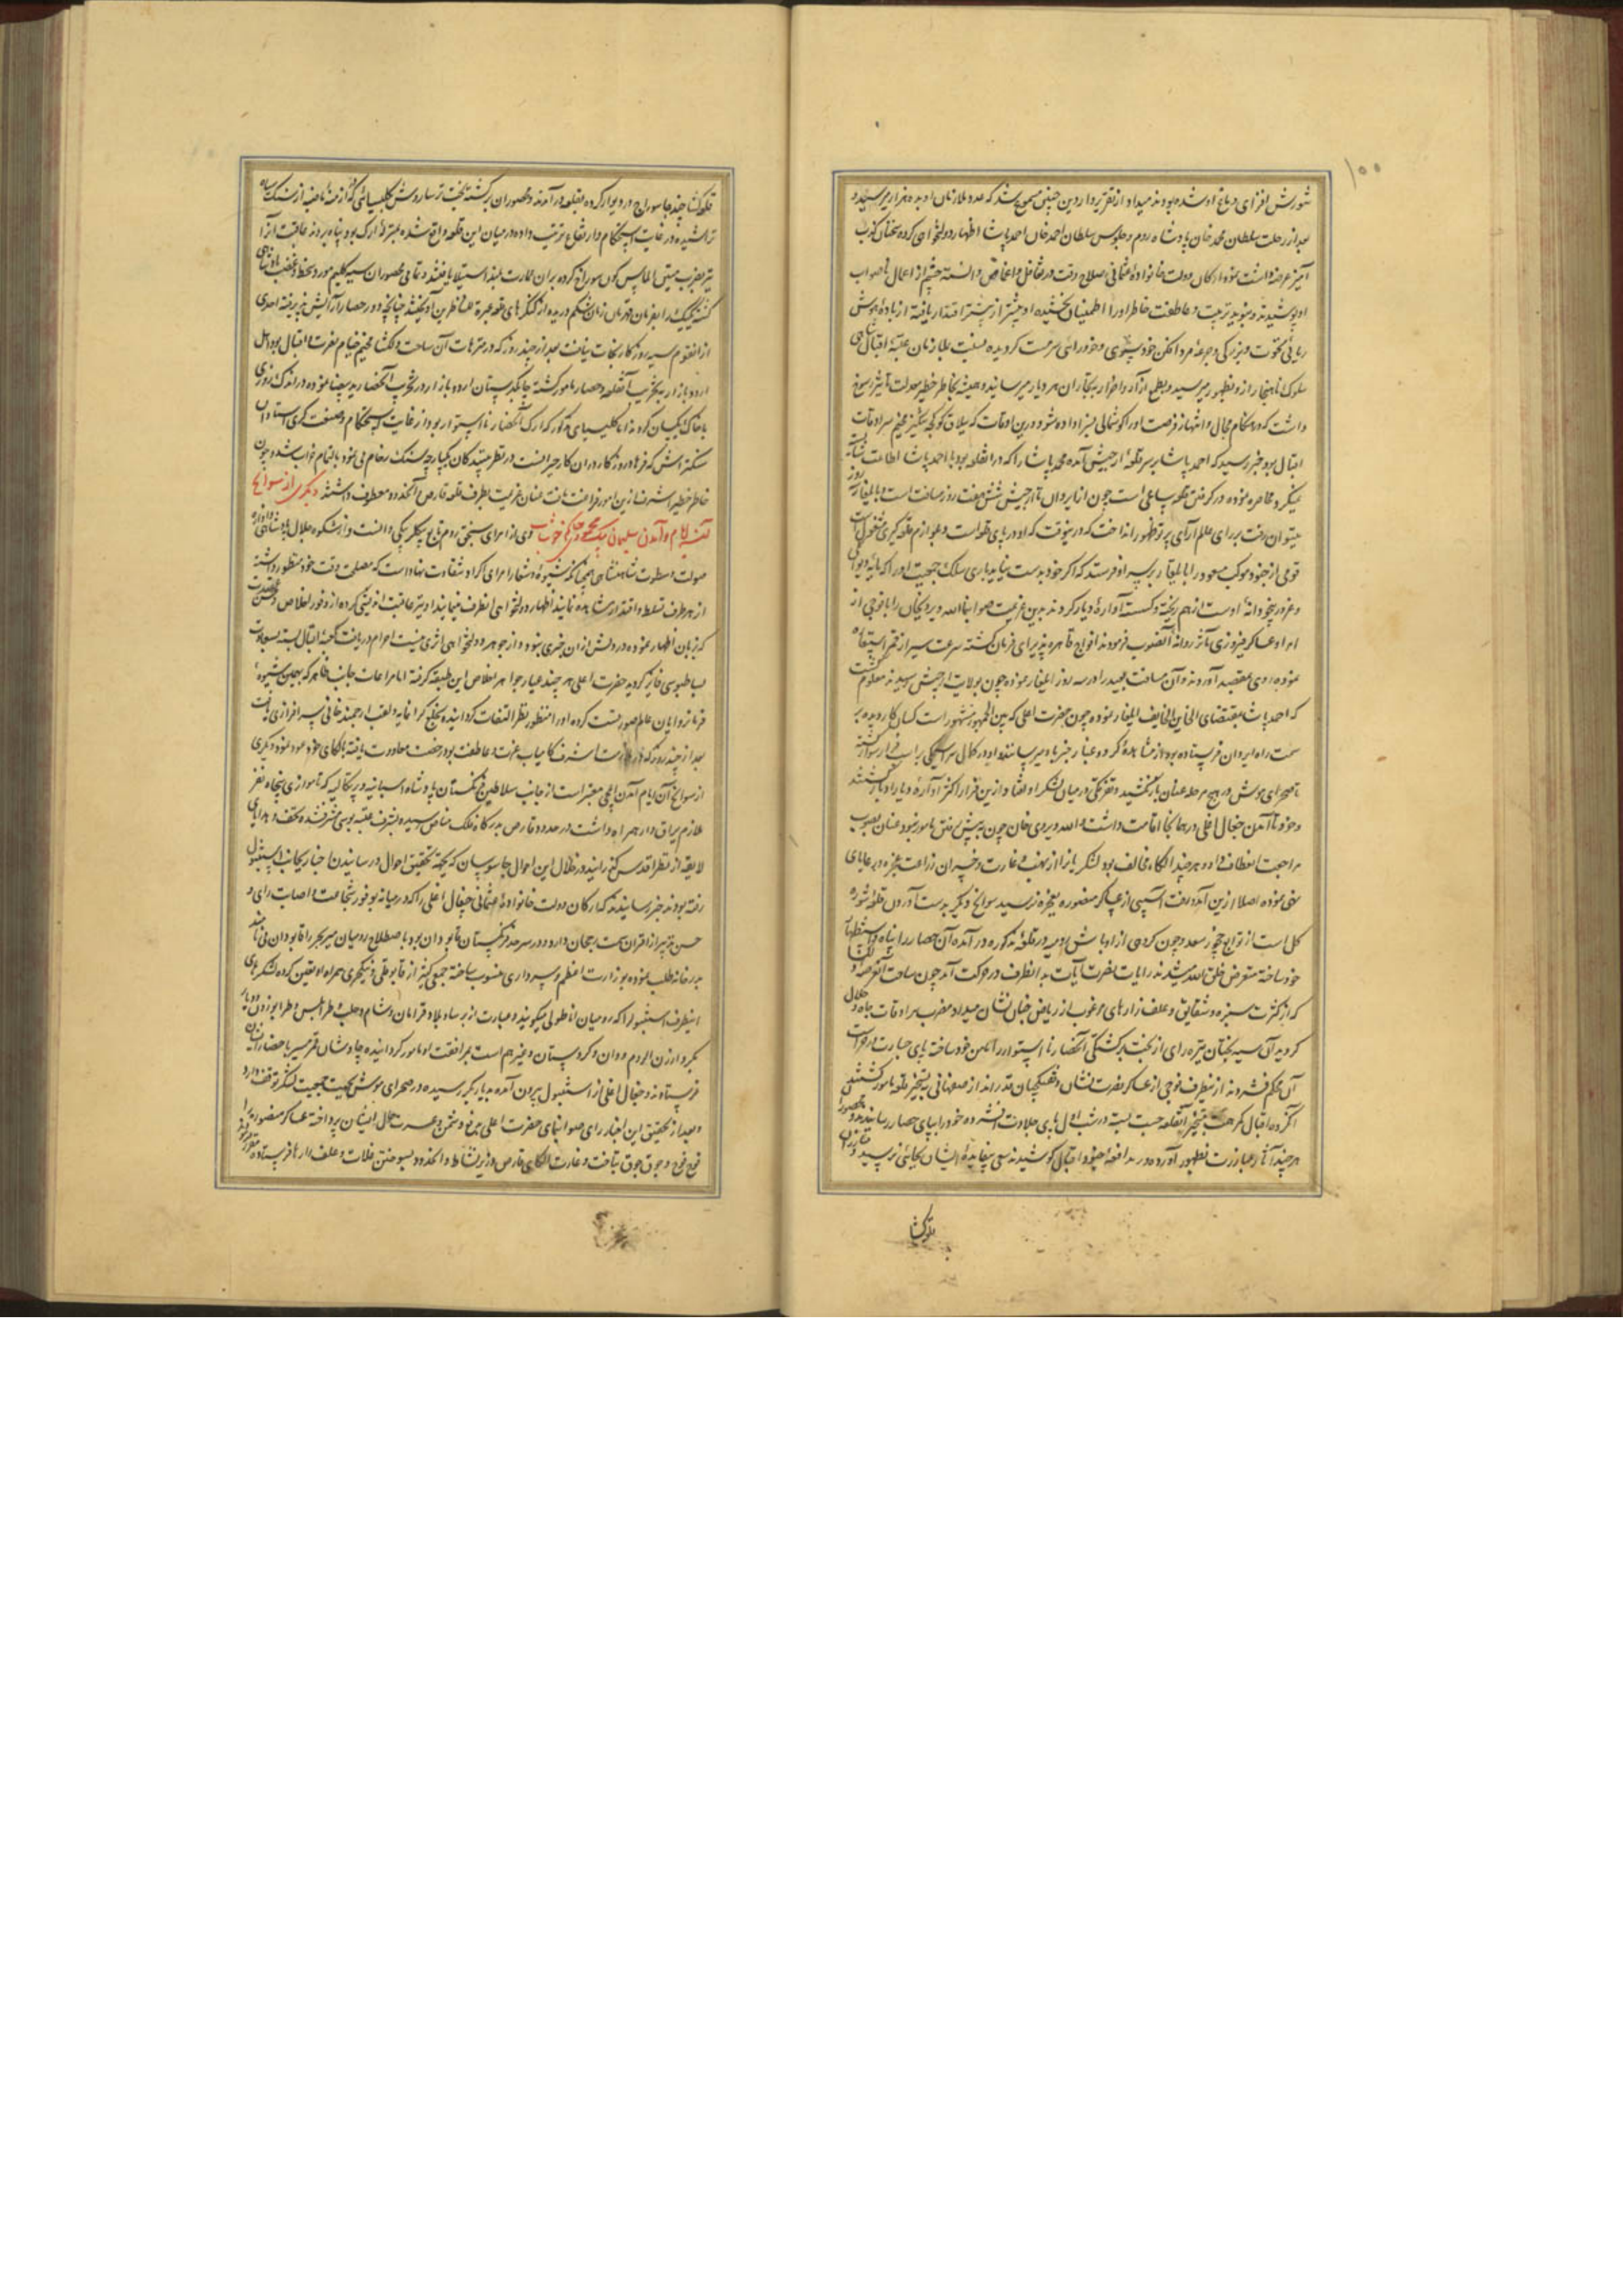 ۱۰۰
شورش افزای دماغ او شده بودند میداد و از تقریر واردین چنین مسموع شد که عدد ملازمان او بده هزار میرسید و
بعد از رحلت سلطان محمد خان پادشاه روم و جلوس سلطان احمد خان احمد پاشا اظهار دولتخواهی کرده سخنان کذب
آمیز عرضه داشت نموده ارکان دولت خانواده عثمانی صلاح وقت در تغافل و اغماض دانسته چشم از اعمال ناصواب
او پوشیدند و بنوید تربیت و عاطفت خاطر او را اطمینان بخشیده او بیشتر از پیشتر اقتدار یافته از باده هوش
ربای نخوت و بزرگی و جرعه مرد افکن خود پسندی و خودرائی سرمست گردیده نسبت بملازمان عتبه اقبال شاهی
سلوک ناهنجار ازو بظهور میرسید و بطمع از آزار و اضرار بتجاران هر دیار میرسانید و همیشه بخاطر خطیر معدلت تأثیر رسوخ
داشت که در هنگام مجال و انتهاز فرصت او را گوشمالی بسزا داده شود درین اوقات که ییلاق کوکجه تنگیز مخیم سرادقات
اقبال بود خبر رسید که احمد پاشا بر سر قلعه ارجیش آمده محمد پاشا را که در آنقلعه بود با احمد پاشا اطاعت شایسته
نمیکرد محاصره نموده در گرفتن قلعه ساعی است چون از ایروان تا ارجیش شش هفت روز مسافت است و بایلغار سه روز
میتوان رفت بر رای عالم آرای پرتو ظهور انداخت که درینوقت که او در پای قلعه است و بلوازم قلعه گیری مشغول است
قومی از جنود موکب مسعود را بایلغار بر سر او فرستند که اگر خود بدست نیاید باری سلک جمعیت او را که مایه دیوانگی
و غرور بیخودانه اوست از هم ریخته و گسسته آواره دیار گردد بدین عزیمت صوابنما الله ویردیخان را با فوجی از
امرا و عساکر فیروزی مآثر روانه آنصوب فرمودند افواج قاهره پذیرای فرمان گشته سرعت سیر از قمر استعاره
نموده روی بمقصد آوردند و آن مسافت بعید را در سه روز ایلغار نموده چون بولایت ارجیش رسیدند معلوم گشت
که احمد پاشا بمقتضای الخاین الخایف ایلغار نموده چون حضرت اعلی که بین الجمهور مشهور است کسان کار دیده بر
سمت راه ایروان فرستاده بود از مشاهده گرد و غبار خبر باو میرسانند و او در کمال سراسیمگی بر اسب فرار سوار شده
تا صحرای موش در هیچ مرحله عنان باز نکشید و تفرقگی در میان لشکر او افتاد و ازین قرار اکثر آواره دیار ادبار گشتند
و خود تا آمدن جغال اغلی در همانجا اقامت داشت و الله ویردی خان چون به پیش رفتن مامور نبود عنان بصوب
مراجعت انعطاف داد هر چند الکاء مخالف بود لشکریانرا از نهب و غارت و خسران زراعت عجزه و رعایای
منع نموده اصلا ازین آمد و رفت آسیبی از عساکر منصوره بعجزه نرسید سوانح دیگر بدست آوردن قلعه شوره
گل است از توابع چخور سعد چون گروهی از اوباش رومیه در قلعه مذکوره در آمده آن حصار را پناه و استظهار
خود ساخته متعرض خلق الله میشدند رایات نصرت آیات بدانطرف در حرکت آمد چون ساحت آنعرصه دلگشا
که از کثرت سبزه و شقایق و علف زارهای مرغوب از ریاض جنان نشان میداد مضرب سرادقات جاه و جلال
گردید آن سیه بختان تیره رای از بخت برگشتگی آنحصار نا استوار را مامن خود ساخته پای جسارت و جرأت
آن محکم فشردند از نیطرف فوجی از عساکر نصرت نشان و تفنگچیان قدر انداز صفاهانی به تسخیر قلعه مامور گشتند
آنگروه اقبال کمر همت بتسخیر آنقلعه چست بسته در شب اول پای جلادت فشرده خود را بپای حصار رسانیدند و محصوران
هر چند آثار مبارزت بظهور آورده در مدافعه جنود اقبال کوشیدند سعی بیفایده ایشان بجائی نرسید و غازیان
قلعه گشا
قلعه گشا چند جا سوراخ در دیوار کرده بقلعه در آمدند و محصوران برگشته بخت ترسا روش کلیسیائی که از ازمنه ماضیه از سنگ سیاه
تراشیده در غایت استحکام و ارتفاع ترتیب داده در میان این قلعه واقع شده بمنزله ارک بود پناه بردند عاقبت آنرا
نیز بضرب متین الماس گون سوراخ کرده بران عمارت بلند استیلا یافتند و تمامی محصوران سیه گلیم مورد سخط و غضب پادشاهی
گشته یکیک را بفرمان قهرمان زمان شکم دریده از کنگرهای قلعه عبرة للناظرین آویختند چنانچه دور حصار را آرایش پذیرفته احدی
از آنقوم سیه روزگار نجات نیافت بعد از چند روز که در متنزهات آن ساحت دلگشا مخیم خیام نصرت و اقبال بود اهل
اردو بازار به تخریب آنقلعه و حصار مامور گشته چابکدستان اردو بازار در تخریب آنحصار ید بیضا نموده در اندک روزی
با خاک یکسان کردند اما کلیسیای مذکور که ارک آنحصار نا استوار بود از غایت استحکام و صنعت گری استادان
سنگتراش که فرهاد روزگار در آن کار حیرانست در نظر بینندگان یکپارچه سنگ رخام می نمود بالتمام خراب نشد و چون
خاطر خطیر اشرف ازین امور فراغت یافت عنان عزیمت بطرف قلعه قارص و آنحدود معطوف داشتند دیگری از سوانح
آن ایام آمدن سلیمان بیک محمودی حاکم خوشاب وی از امرای سنجق روم تابع بیگلربیگی وانست و از شکوه جلال پادشاهی و آوازه
صولت و سطوت شاهنشاهی چنانکه شیوه و شعار امرای اکراد شقاوت نهاد است که مصلحت وقت خود منظور داشته
از هر طرف تسلط و اقتدار مشاهده نمایند اظهار دولتخواهی انطرف نمایند او نیز عاقبت اندیشی کرده از وفور اخلاص و حسن عقیدت
که بزبان اظهار نموده در دلش ازان خبری نبود و از جوهر دولتخواهی اثری نیست احرام دریافت کعبه اقبال بسته بسعادت
بساطبوسی فایز گردید حضرت اعلی هر چند عیار جواهر اخلاص این طبقه گرفته اما مراعات جانب ظاهر که بهین شیوه
فرمانروایان عالم صورتست کرده او را منظور نظر التفات گردانیده بخلع گرانمایه و لقب ارجمند خانی سرافرازی یافت
بعد از چند روز که در ملازمت اشرف کامیاب عزت و عاطفت بود رخصت معاودت یافته بالکای خود عود نمود دیگری
از سوانح آن ایام آمدن ایلچی معتبر است از جانب سلاطین فرنگستان پادشاه اسپانیه و پرتکالیه که با موازی پنجاه نفر
ملازم یراق دار همراه داشت در حدود قارص بدرگاه فلک مناص رسیده بشرف عتبه بوسی مشرف شده تحف و هدایای
لایقه از نظر اقدس گذرانید در خلال این احوال جاسوسان که بجهة تحقیق احوال و رسانیدن اخبار بجانب استنبول
رفته بودند خبر رسانیدند که ارکان دولت خانواده عثمانی جغال اغلی را که در میانه بوفور شجاعت و اصابت رای و
حسن تدبیر از اقران سمت رجحان دارد و در سرحد فرنگستان قاپودان بود باصطلاح رومیان میر بحر را قاپودان می نامند
بدرخانه طلب نموده بوزارت اعظم و سرداری منسوب ساخته جمعی کثیر از قاپو قلی و ینکچری همراه او تعیین کرده لشکرهای
اینطرف استنبول را که رومیان اناطولی میگویند و عبارت از برسا و بلاد قرامان و شام و حلب و طرابلس و طرابوزون و دیار
بکر و ارزن الروم و وان و کردستان و غیرهم است بمرافقت او مامور گردانیده چاوشان قمر مسیر باحضار ایشان
فرستادند و جغال اغلی از استنبول بیرون آمده بدیار بکر رسیده در صحرای موش بجهت جمعیت لشکر توقف دارد
و بعد از تحقیق این اخبار رای صوابنمای حضرت اعلی بدفع دشمن و عسرت حال ایشان پرداخته عساکر منصوره را
فوج فوج و جوق جوق بتاخت و غارت الکای قارص و زیر نشاط و آنحدود و بسوختن غلات و علف زارها فرستاده مقرر فرمودند